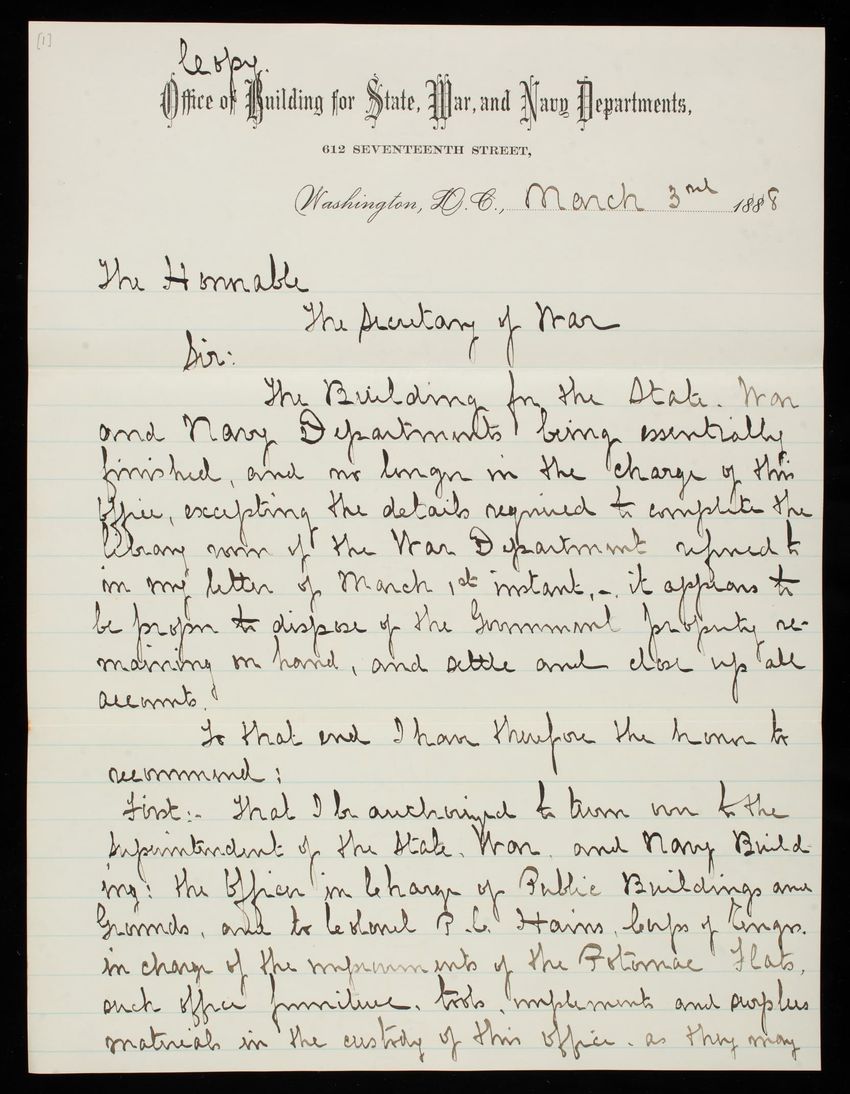 [1]
Copy.
Office of Building for State, War, and Navy Departments,
612 SEVENTEENTH STREET,
Washington, D.C., March 3rd 1888
The Honorable
The Secretary of War
Sir:
The Building for the State. War
and Navy Departments being essentially
finished, and no longer in the charge of this
Office, excepting the details required to complete the
library room of the War Department referred to
in my letter of March 1st instant,-. it appears to
be proper to dispose of the Government property re-
maining on hand, and settle and close up all
accounts.
To that end I have therefore the honor to
recommend:
First:- That I be authorized to turn over to the
Superintendent of the State. War. and Navy Build-
ing: the Officer in Charge of Public Buildings and
Grounds, and to Colonel P. C. Hains, Corps of Engrs.
in charge of the improvements of the Potomac Flats,
such office furniture, tools, implements and surplus
materials in the custody of this office. as they may